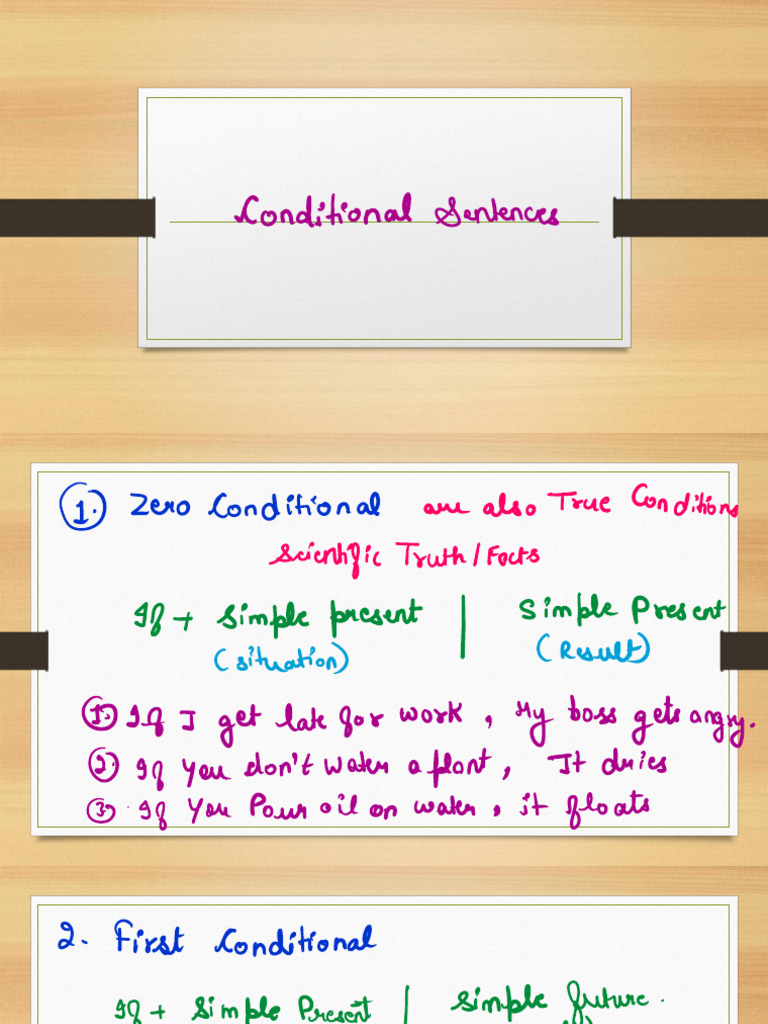 Conditional Sentences
1. Zero Conditional are also True Conditions
Scientific Truth/Facts
If + Simple present | Simple Present
(situation) (Result)
1. If I get late for work, My boss gets angry.
2. If you don't water a plant, It dries
3. If You Pour oil on water, it floats
2. First Conditional
If + Simple Present | Simple future.